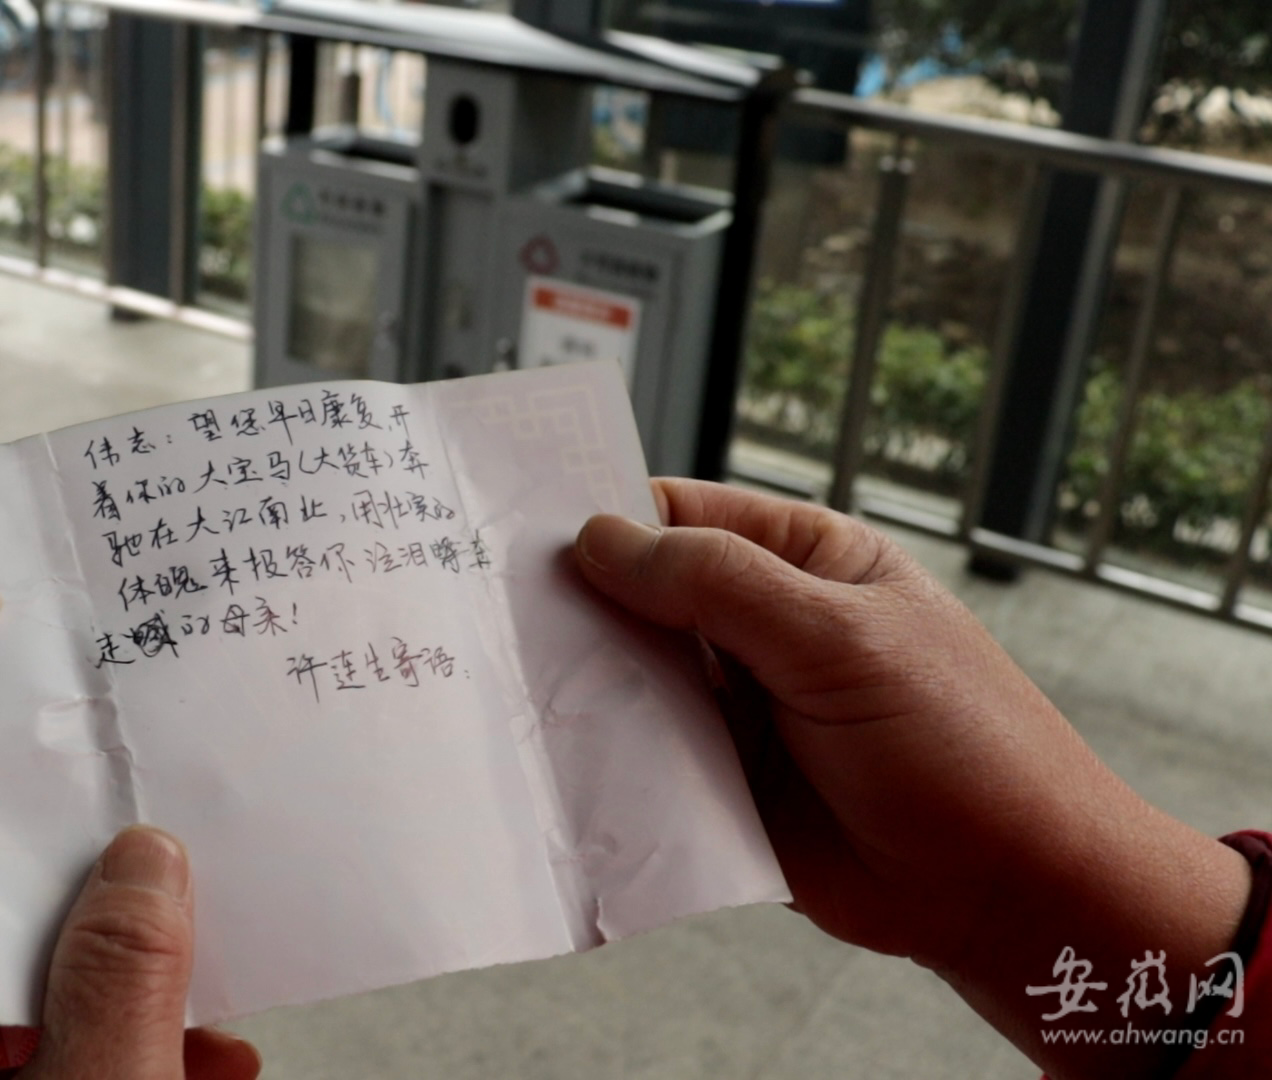 伟志：望您早日康复，开
着你的大宝马（大货车）奔
驰在大江南北，用壮实的
体魄来报答你泣泪
走 的母亲！
许连生寄语：
安徽网
www.ahwang.cn